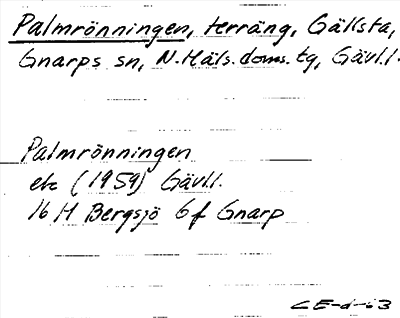 Palmrönningen, terräng, Gällsta,
Gnarps sn, N. Häls. doms. tg, Gävl.l.
Palmrönningen
ek (1959) Gävl.l.
16 H Bergsjö 6f Gnarp
CE-d-i3